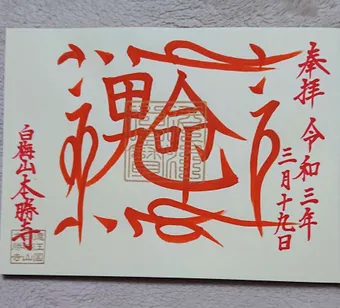 奉拝
令和三年
三月十九日
命
白梅山本勝寺